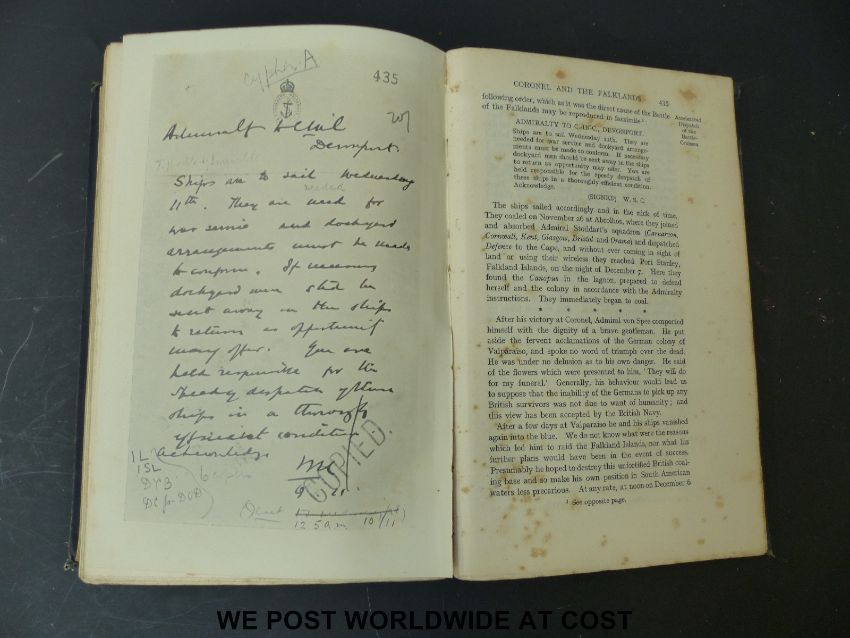 Cypher A
435
Admiralty to C in C
Devonport.
Ships are to sail Wednesday
11th. They are needed for
war service and dockyard
arrangements must be made
to conform. If necessary
dockyard men shd be
sent away in the ships
to return as opportunity
may offer. You are
held responsible for the
speedy despatch of these
ships in a thoroughly
efficient condition.
Acknowledge
WSC
COPIED.
1 L
1 SL
Sent
12 5 am 10/11
CORONEL AND THE FALKLANDS 435
following order, which as it was the direct cause of the Battle
of the Falklands may be reproduced in facsimile¹:
Accelerated
Dispatch
of the
Battle-
Cruisers
ADMIRALTY TO C.-IN-C., DEVONPORT.
Ships are to sail Wednesday 11th. They are
needed for war service and dockyard arrange-
ments must be made to conform. If necessary
dockyard men should be sent away in the ships
to return as opportunity may offer. You are
held responsible for the speedy despatch of
these ships in a thoroughly efficient condition.
Acknowledge.
(SIGNED) W. S. C.
The ships sailed accordingly and in the nick of time.
They coaled on November 26 at Abrolhos, where they joined
and absorbed Admiral Stoddart's squadron (Carnarvon,
Cornwall, Kent, Glasgow, Bristol and Orama) and dispatched
Defence to the Cape, and without ever coming in sight of
land or using their wireless they reached Port Stanley,
Falkland Islands, on the night of December 7. Here they
found the Canopus in the lagoon, prepared to defend
herself and the colony in accordance with the Admiralty
instructions. They immediately began to coal.
* * * * *
After his victory at Coronel, Admiral von Spee comported
himself with the dignity of a brave gentleman. He put
aside the fervent acclamations of the German colony of
Valparaiso, and spoke no word of triumph over the dead.
He was under no delusion as to his own danger. He said
of the flowers which were presented to him, 'They will do
for my funeral.' Generally, his behaviour would lead us
to suppose that the inability of the Germans to pick up any
British survivors was not due to want of humanity; and
this view has been accepted by the British Navy.
After a few days at Valparaiso he and his ships vanished
again into the blue. We do not know what were the reasons
which led him to raid the Falkland Islands, nor what his
further plans would have been in the event of success.
Presumably he hoped to destroy this unfortified British coal-
ing base and so make his own position in South American
waters less precarious. At any rate, at noon on December 6
¹ See opposite page.
WE POST WORLDWIDE AT COST